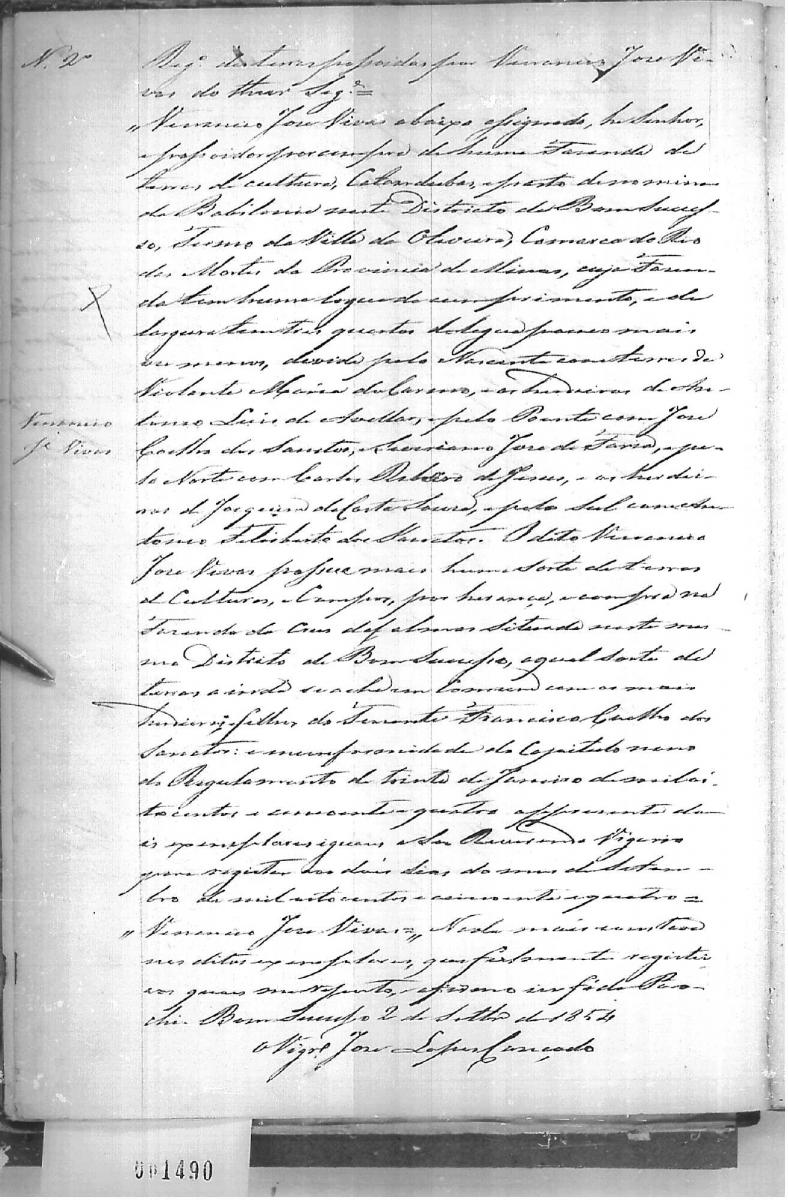 N. 2º
Reg.º de terras possoidas por Venancio Jose Vi-
vas do theor Seg.e =
"Venancio Jose Vivas abaixo assignado, he Senhor,
e possoidor por compra de huma Fazenda de
terras de cultura, Catandubas, e pasto denomina-
da Babilonia neste Districto de Bom Succes-
so, Termo da Villa de Oliveira, Comarca do Rio
das Mortes da Provincia de Minas, cuja Fazen-
da tem huma legua de comprimento, e de
largura tem tres quartos de legua pouco mais
ou menos, devide pelo Nascente com terras de
Violante Maria do Carmo, e os herdeiros de An-
tonio Luis de Avellar, e pelo Poente com Jose
Coelho dos Sanctos, e Severiano Jose de Faria, e pe-
lo Norte com Carlos Ribeiro de Jesus, e os herdei-
ros de Joaquim da Costa Souza, e pelo Sul com An-
tonio Felisberto dos Sanctos. O dito Venancio
Jose Vivas possue mais huma sorte de terras
de Culturas, e Campos, por herança, e compra na
Fazenda da Cruz das Almas Situada neste mes-
mo Districto de Bom Successo, a qual sorte de
terras ainda se acha em comum com os mais
herdeiros filhos do Tenente Francisco Coelho dos
Sanctos: e em conformidade do Capitulo nono
do Regulamento de trinta de Janeiro de mil oi-
tocentos e cincoenta e quatro appresenta do-
is exemplares iguaes a Seu Reverendo Vigario
para registar aos dois dias do mes de Setem-
bro de mil oitocentos e cincoenta e quatro =
"Venancio Jose Vivas =" Nada mais continha
nos ditos exemplares, que fielmente registei
aos quaes me reporto, e afirmo in fide Paro-
chi. Bom Successo 2 de Setbr.o de 1854
O Vigr.o Jose Lopes Cançado
Venancio
J.e Vivas
001490